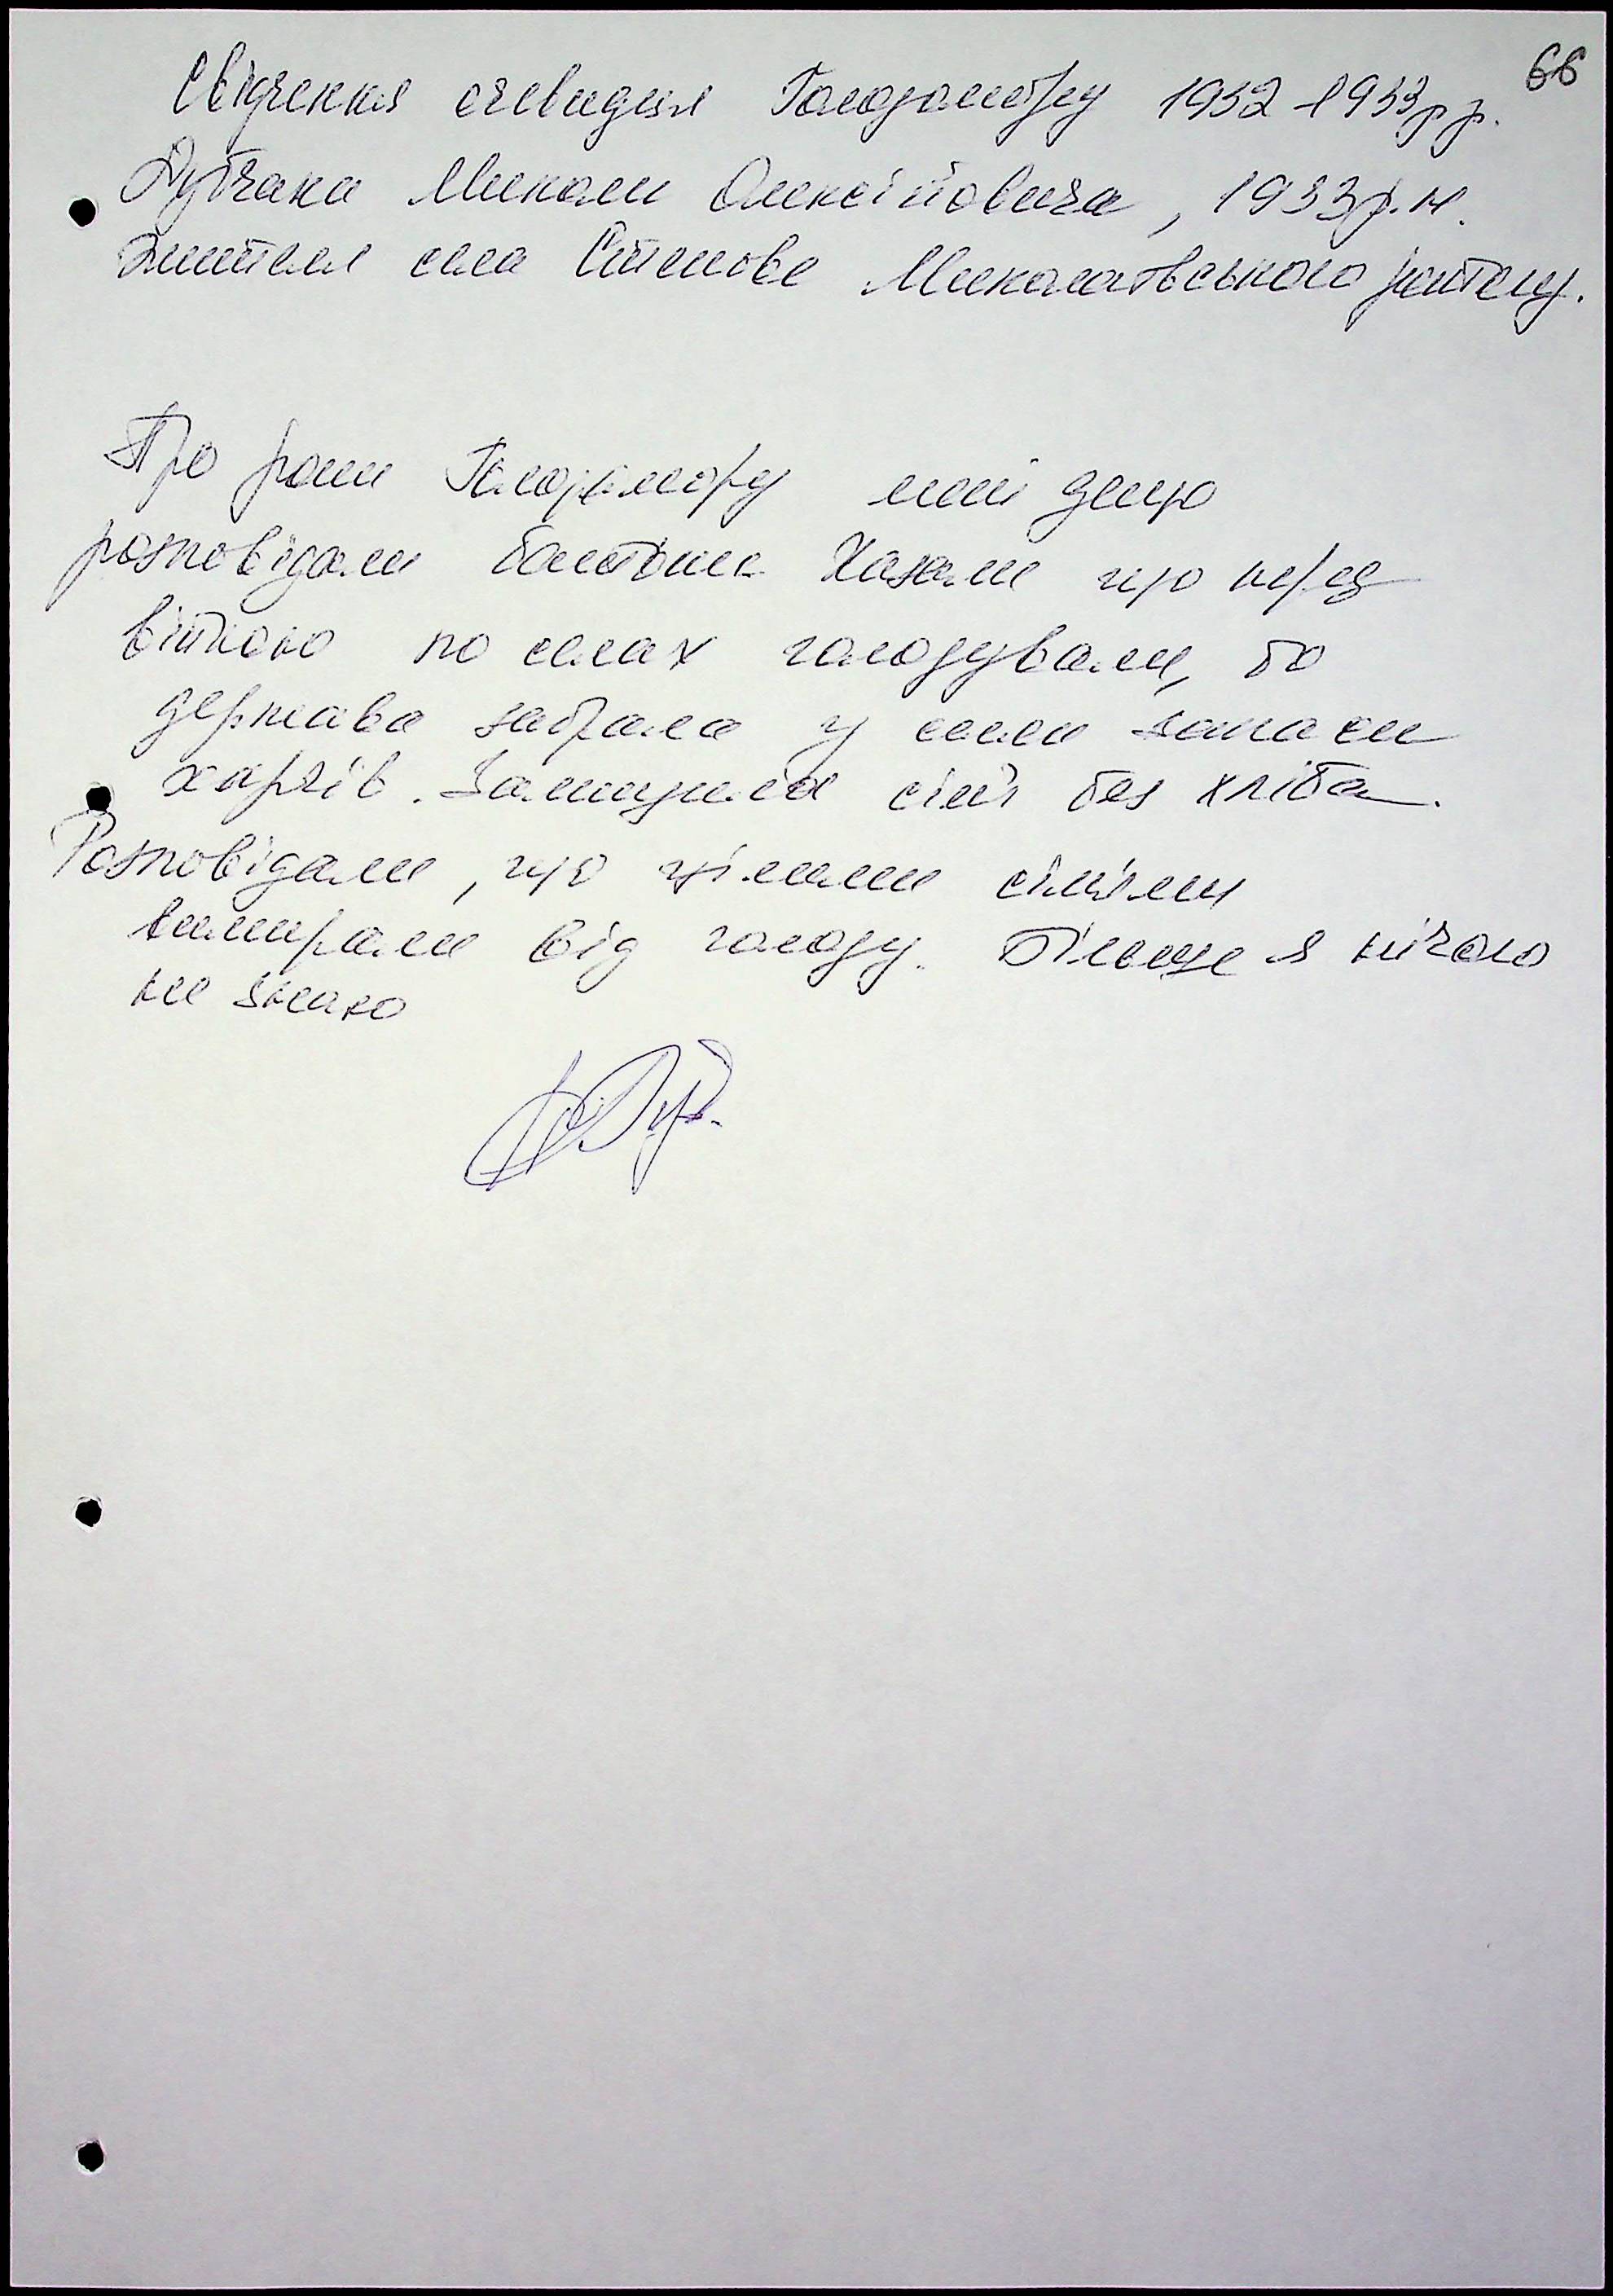 66
Свідчення очевидця Голодомору 1932-1933рр.
Дубчака Миколи Олексійовича, 1933р.н.
жителя села Степове Миколаївського району.
Про роки Голодомору мені дещо
розповідали батьки. Казали що перед
війною по селах голодували, бо
держава забрала у селян запаси
харчів. Залишила сім'ї без хліба.
Розповідали, що цілими сім'ями
вмирали від голоду. Більше я нічого
не знаю